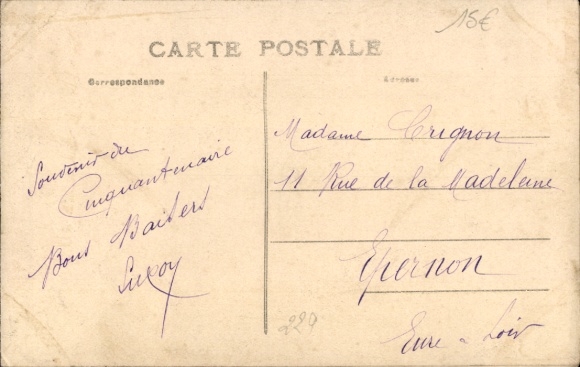 15€
CARTE POSTALE
Correspondance
Adresse
Souvenir du
Cinquantenaire
Bons Baisers
Madame Crignon
11 Rue de la Madeleine
Epernon
Eure & Loir